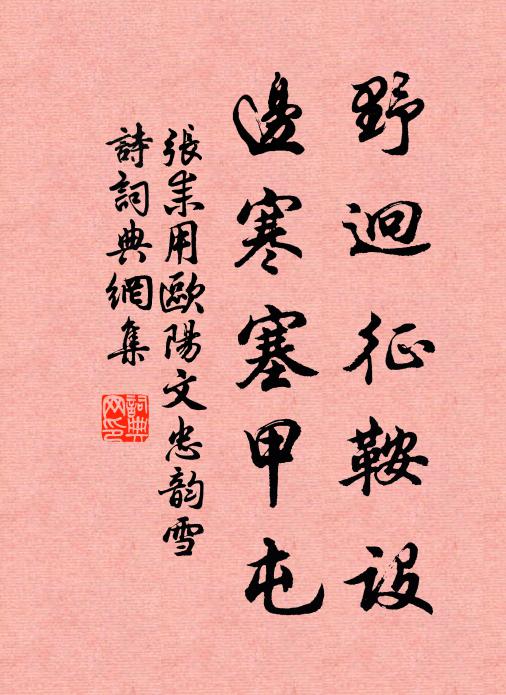 野迥征鞍没
邊寒塞甲屯
張耒用歐陽文忠韵雪
詩詞典網集
詞典網印